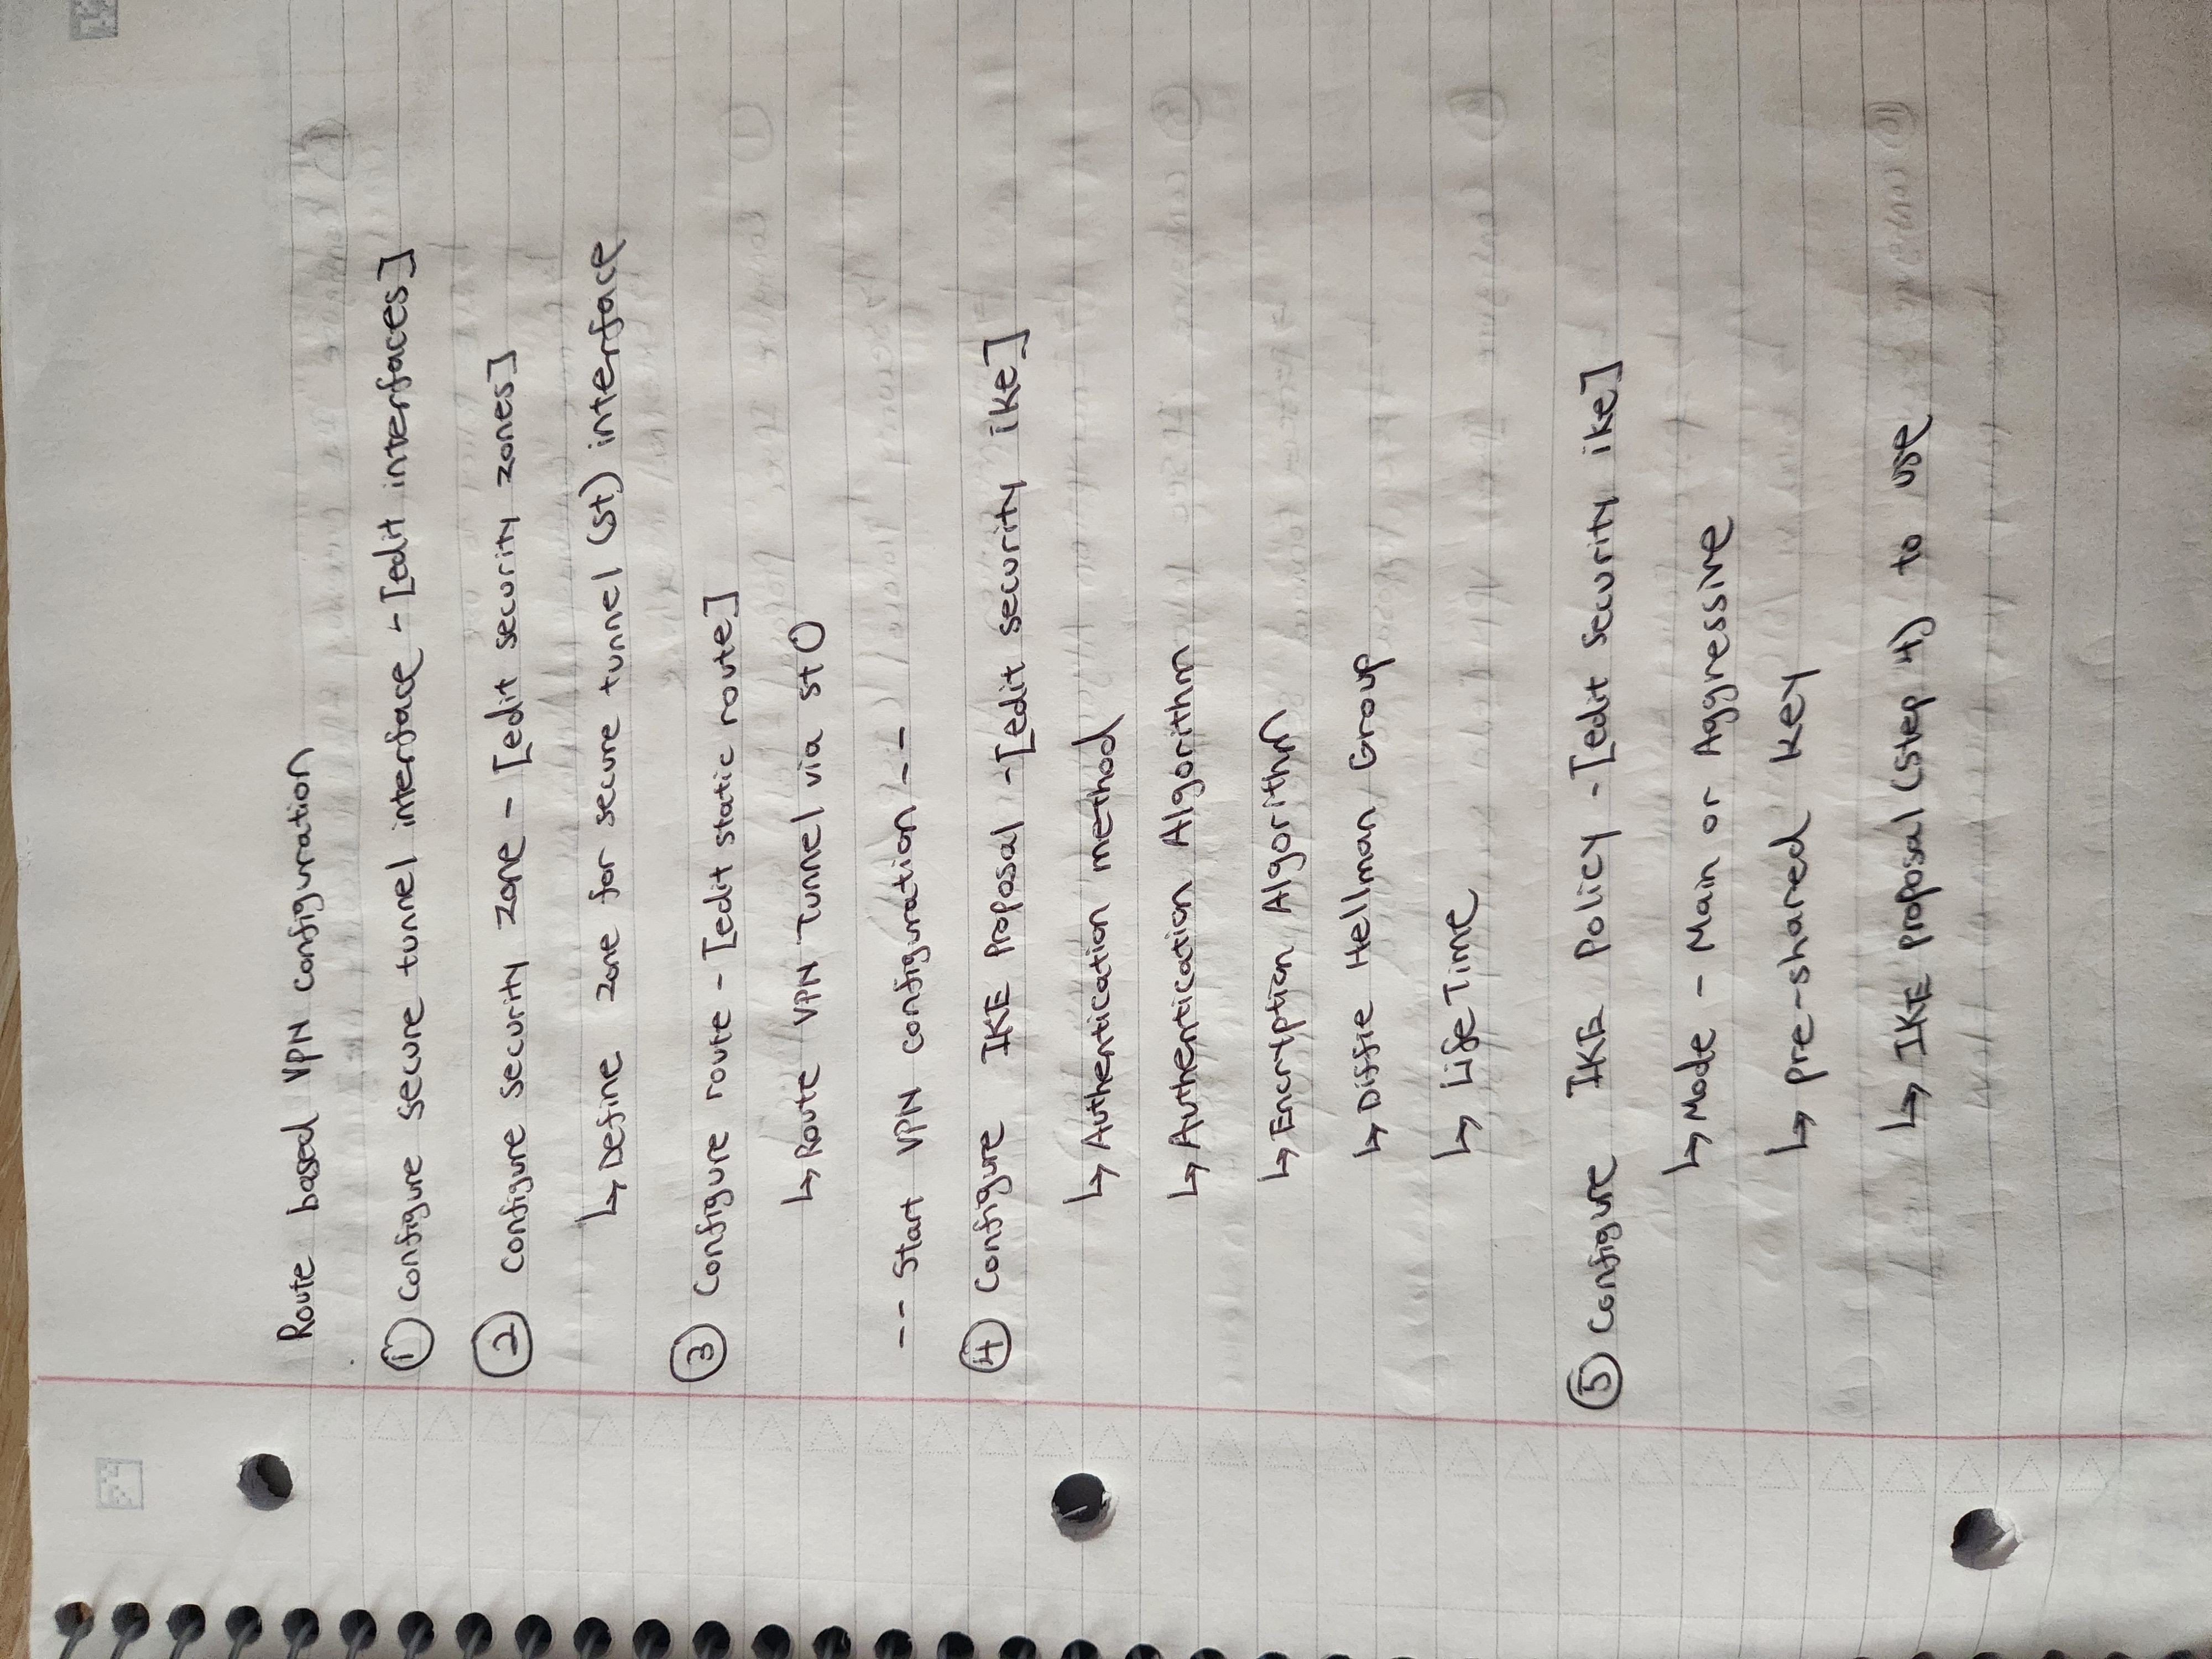 Route based VPN configuration
① Configure secure tunnel interface - [edit interfaces]
② Configure security zone - [edit security zones]
↳ Define zone for secure tunnel (st) interface
③ Configure route - [edit static route]
↳ Route VPN Tunnel via st0
-- Start VPN configuration --
④ Configure IKE Proposal - [edit security ike]
↳ Authentication method
↳ Authentication Algorithm
↳ Encryption Algorithm
↳ Diffie Hellman Group
↳ Life Time
⑤ Configure IKE Policy - [edit security ike]
↳ Mode - Main or Aggressive
↳ pre-shared key
↳ IKE proposal (step 4) to use